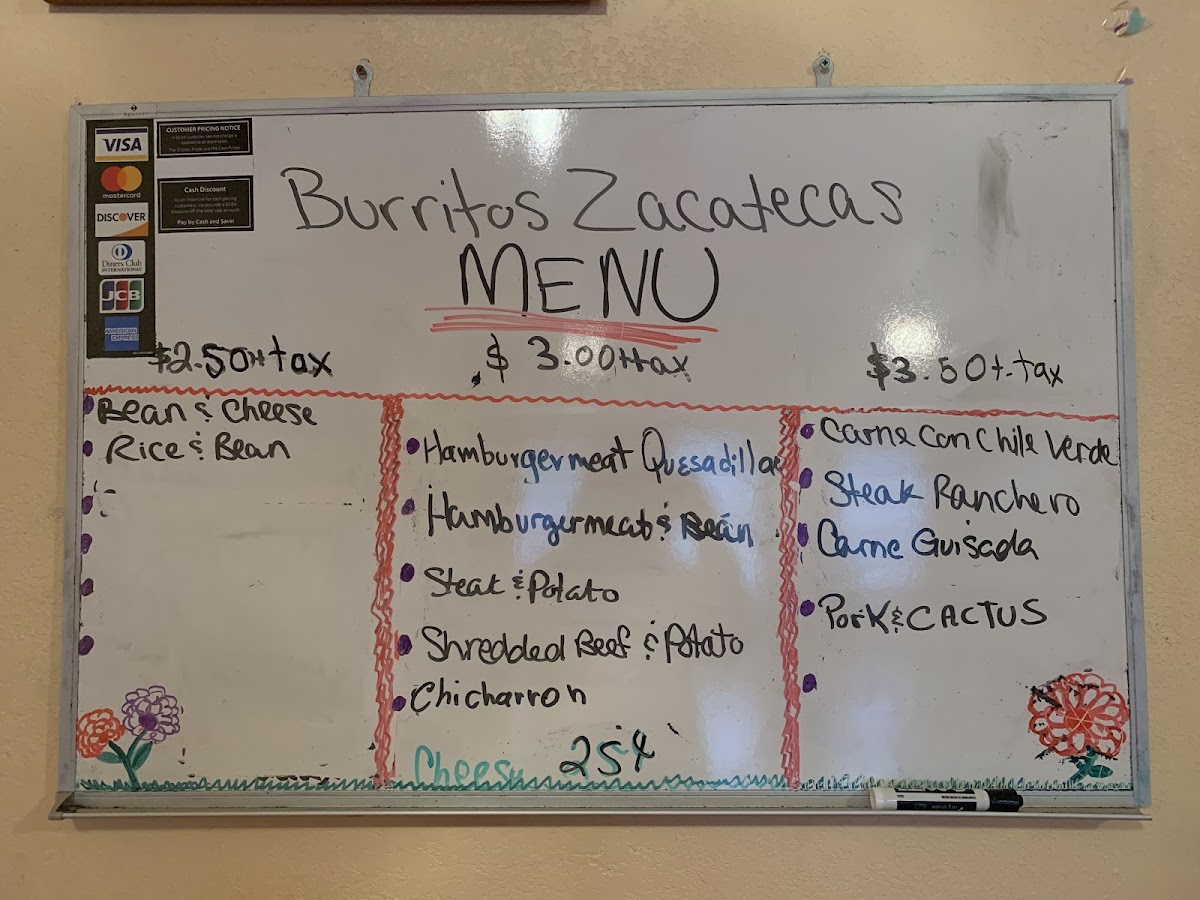 VISA
mastercard
DISCOVER
Diners Club
INTERNATIONAL
JCB
AMERICAN
EXPRESS
CUSTOMER PRICING NOTICE
Cash Discount
Pay by Cash and Save!
Burritos Zacatecas
MENU
$2.50+tax
Bean & Cheese
Rice & Bean
$3.00+tax
Hamburgermeat Quesadillas
Hamburgermeat & Bean
Steak & Potato
Shredded Beef & Potato
Chicharron
Cheese 25¢
$3.50+tax
Carne Con Chile Verde
Steak Ranchero
Carne Guisada
Pork & CACTUS